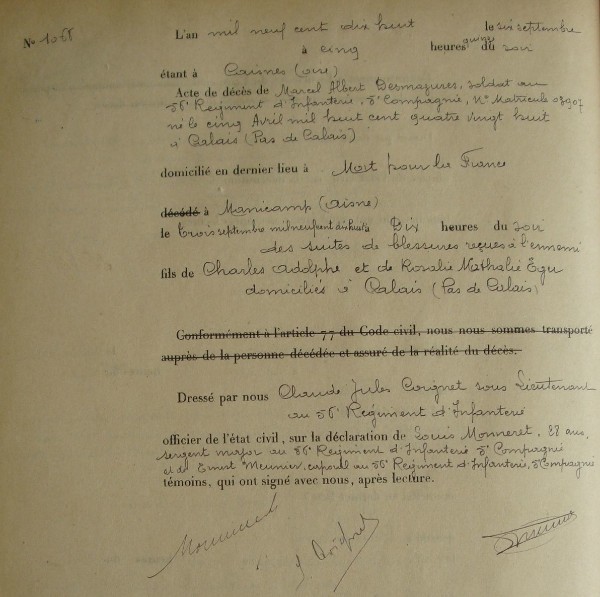 N° 1055
L'an mil neuf cent dix huit le six septembre
à cinq heures quinze du soir
étant à Caisnes (Oise)
Acte de décès de Marcel Albert Desmazures, soldat au
56e Régiment d'Infanterie, 5e Compagnie, N° Matricule 03907
né le cinq Avril mil huit cent quatre vingt huit
à Calais (Pas de Calais)
domicilié en dernier lieu à Mort pour la France
décédé à Manicamp (Aisne)
le trois septembre mil neuf cent dix huit à Dix heures du soir
des suites de blessures reçues à l'ennemi
fils de Charles Adolphe et de Rosalie Nathalie
domiciliés à Calais (Pas de Calais)
Conformément à l'article 77 du Code civil, nous nous sommes transporté
auprès de la personne décédée et assuré de la réalité du décès.
Dressé par nous Claude Jules Coignet sous Lieutenant
au 56e Régiment d'Infanterie
officier de l'état civil, sur la déclaration de Louis Monneret, ans,
sergent major au 56e Régiment d'Infanterie 5e Compagnie
et de Ernest Meunier, caporal au 56e Régiment d'Infanterie, 5e Compagnie
témoins, qui ont signé avec nous, après lecture.
Monneret
J Coignet
Meunier